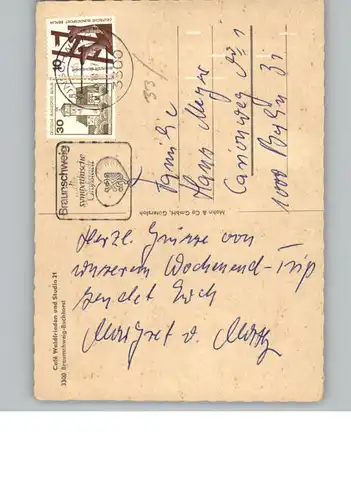 DEUTSCHE BUNDESPOST BERLIN
10
30
3300
Braunschweig
die
sympathische
Großstadt
Familie
Hans Meyer
1000 Berlin 31
Mohn & Co GmbH, Gütersloh
Herzl. Grüsse von
unserem Wochenend-Trip
sendet Euch
Margret u. Moritz
Café Waldfrieden und Studio 21
3300 Braunschweig-Buchhorst